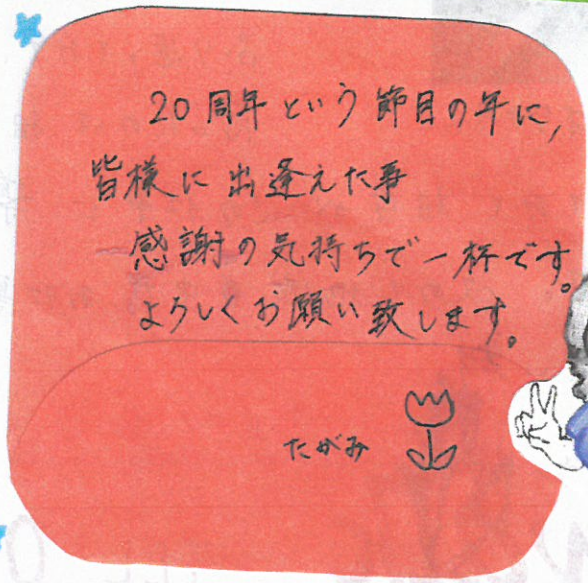 20周年という節目の年に,
皆様に出逢えた事
感謝の気持ちで一杯です。
よろしくお願い致します。
たがみ